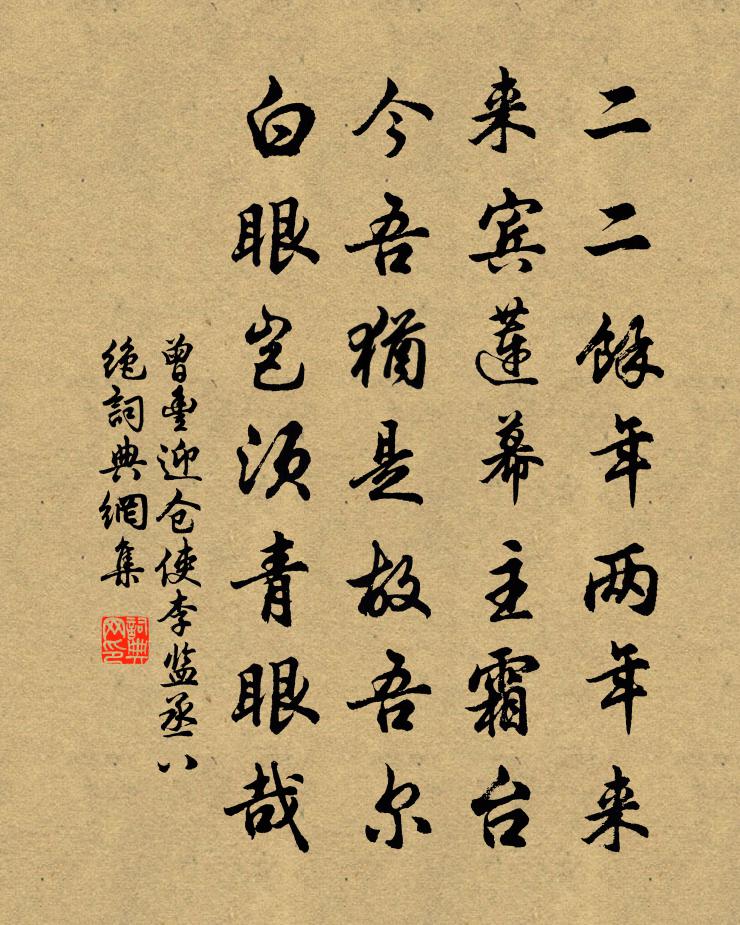 二二餘年两年来
来宾蓮幕主霜台
今吾猶是故吾尔
白眼岂须青眼哉
曾豊迎仓使李监丞八
绝詞典網集
詞典
网印